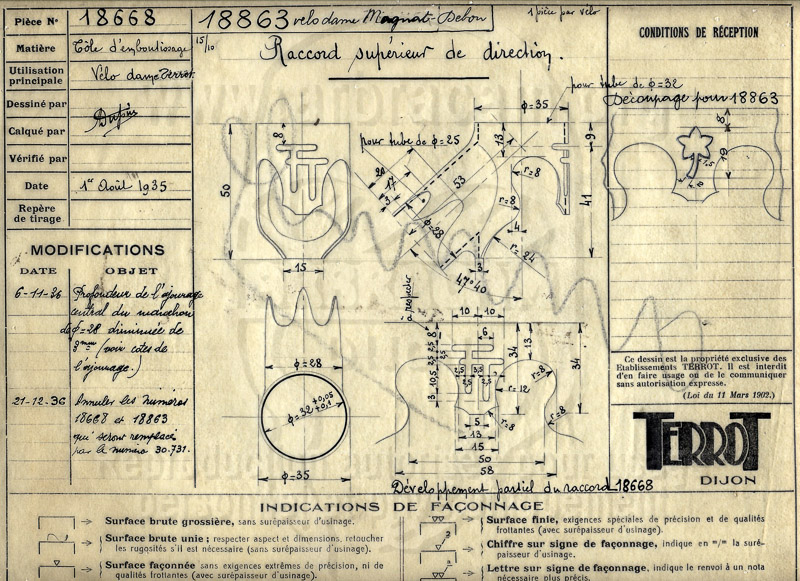 Pièce N° 18668
18863 velo dame Magnat-Debon
1 pièce par vélo
Matière Tôle d'emboutissage 15/10
Utilisation principale Vélo dame Terrot
Dessiné par
Calqué par
Vérifié par
Date 1er Août 1935
Repère de tirage
Raccord supérieur de direction.
CONDITIONS DE RÉCEPTION
pour tube de φ=32
Découpage pour 18863
φ=35
pour tube de φ=25
8
50
15
20
17
3
53
13
9
41
r=8
r=8
4
r=24
φ=28
3
47°40
8
19
MODIFICATIONS
DATE OBJET
6-11-36 Profondeur de l'ajourage
central du manchon
de φ=28 diminuée de
3mm (voir cotes de
l'ajourage.)
21-12-36 Annuler les numéros
18668 et 18863
qui seront remplacé
par le numero 30.731.
φ=28
φ=32 +0,05 +0,1
φ=35
à respecter
10 10
6
8
2,5
2,5
10,5
3
34
13
34
r=12
r=8
r=8
r=8
5
13
15
50
58
Développement partiel du raccord 18668
Ce dessin est la propriété exclusive des
Etablissements TERROT. Il est interdit
d'en faire usage ou de le communiquer
sans autorisation expresse.
(Loi du 11 Mars 1902.)
TERROT
DIJON
INDICATIONS DE FAÇONNAGE
Surface brute grossière, sans surépaisseur d'usinage.
Surface brute unie; respecter aspect et dimensions, retoucher
les rugosités s'il est nécessaire (sans surépaisseur d'usinage).
Surface façonnée sans exigences extrêmes de précision, ni de
qualités frottantes (avec surépaisseur d'usinage).
Surface finie, exigences spéciales de précision et de qualités
frottantes (avec surépaisseur d'usinage).
Chiffre sur signe de façonnage, indique en "/= la surépaisseur d'usinage.
Lettre sur signe de façonnage, indique le renvoi à un nota
nécessaire plus précis.